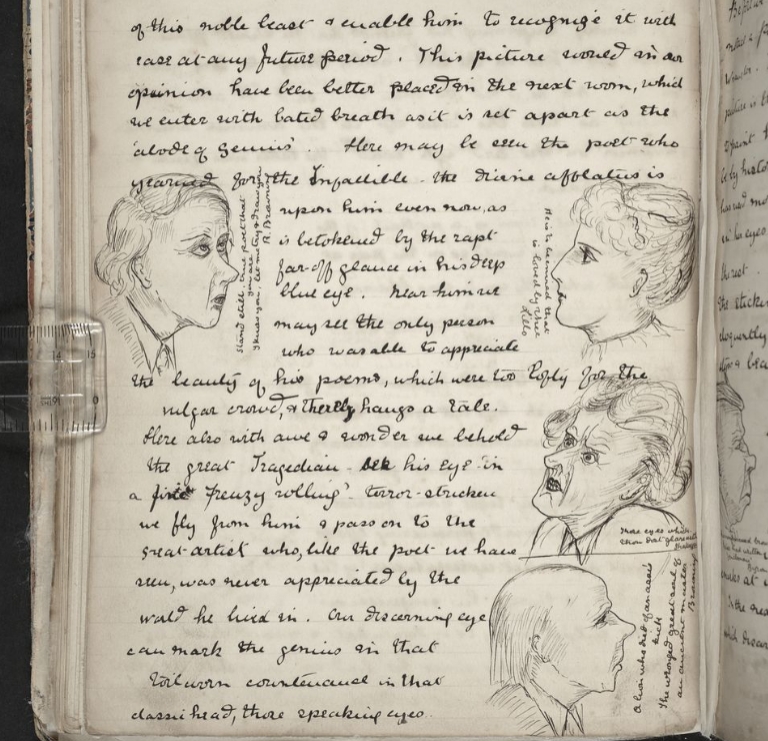 of this noble beast & enable him to recognise it with
ease at any future period. This picture would in our
opinion have been better placed in the next room, which
we enter with bated breath as it is set apart as the
'abode of genius'. Here may be seen the poet who
yearned for the Infallible. the divine afflatus is
upon him even now, as
is betokened by the rapt
far-off glance in his deep
blue eye. Near him we
may see the only person
who was able to appreciate
the beauty of his poems, which were too lofty for the
vulgar crowd, & thereby hangs a tale.
Here also with awe & wonder we behold
the great Tragedian his eye in
a fine 'frenzy rolling'. Terror-stricken
we fly from him & pass on to the
great artist who, like the poet we have
seen, was never appreciated by the
world he lived in. Our discerning eye
can mark the genius in that
toilworn countenance in that
classic head, those speaking eyes.
Stand still, true poet that
you are
I know you, let me try & draw you
R. Browning
is loved by thee
Those eyes which
thou dost glare with
A lion who died of an ass's
kick
The wronged great soul of
an ancient master
Browning
14
15
0